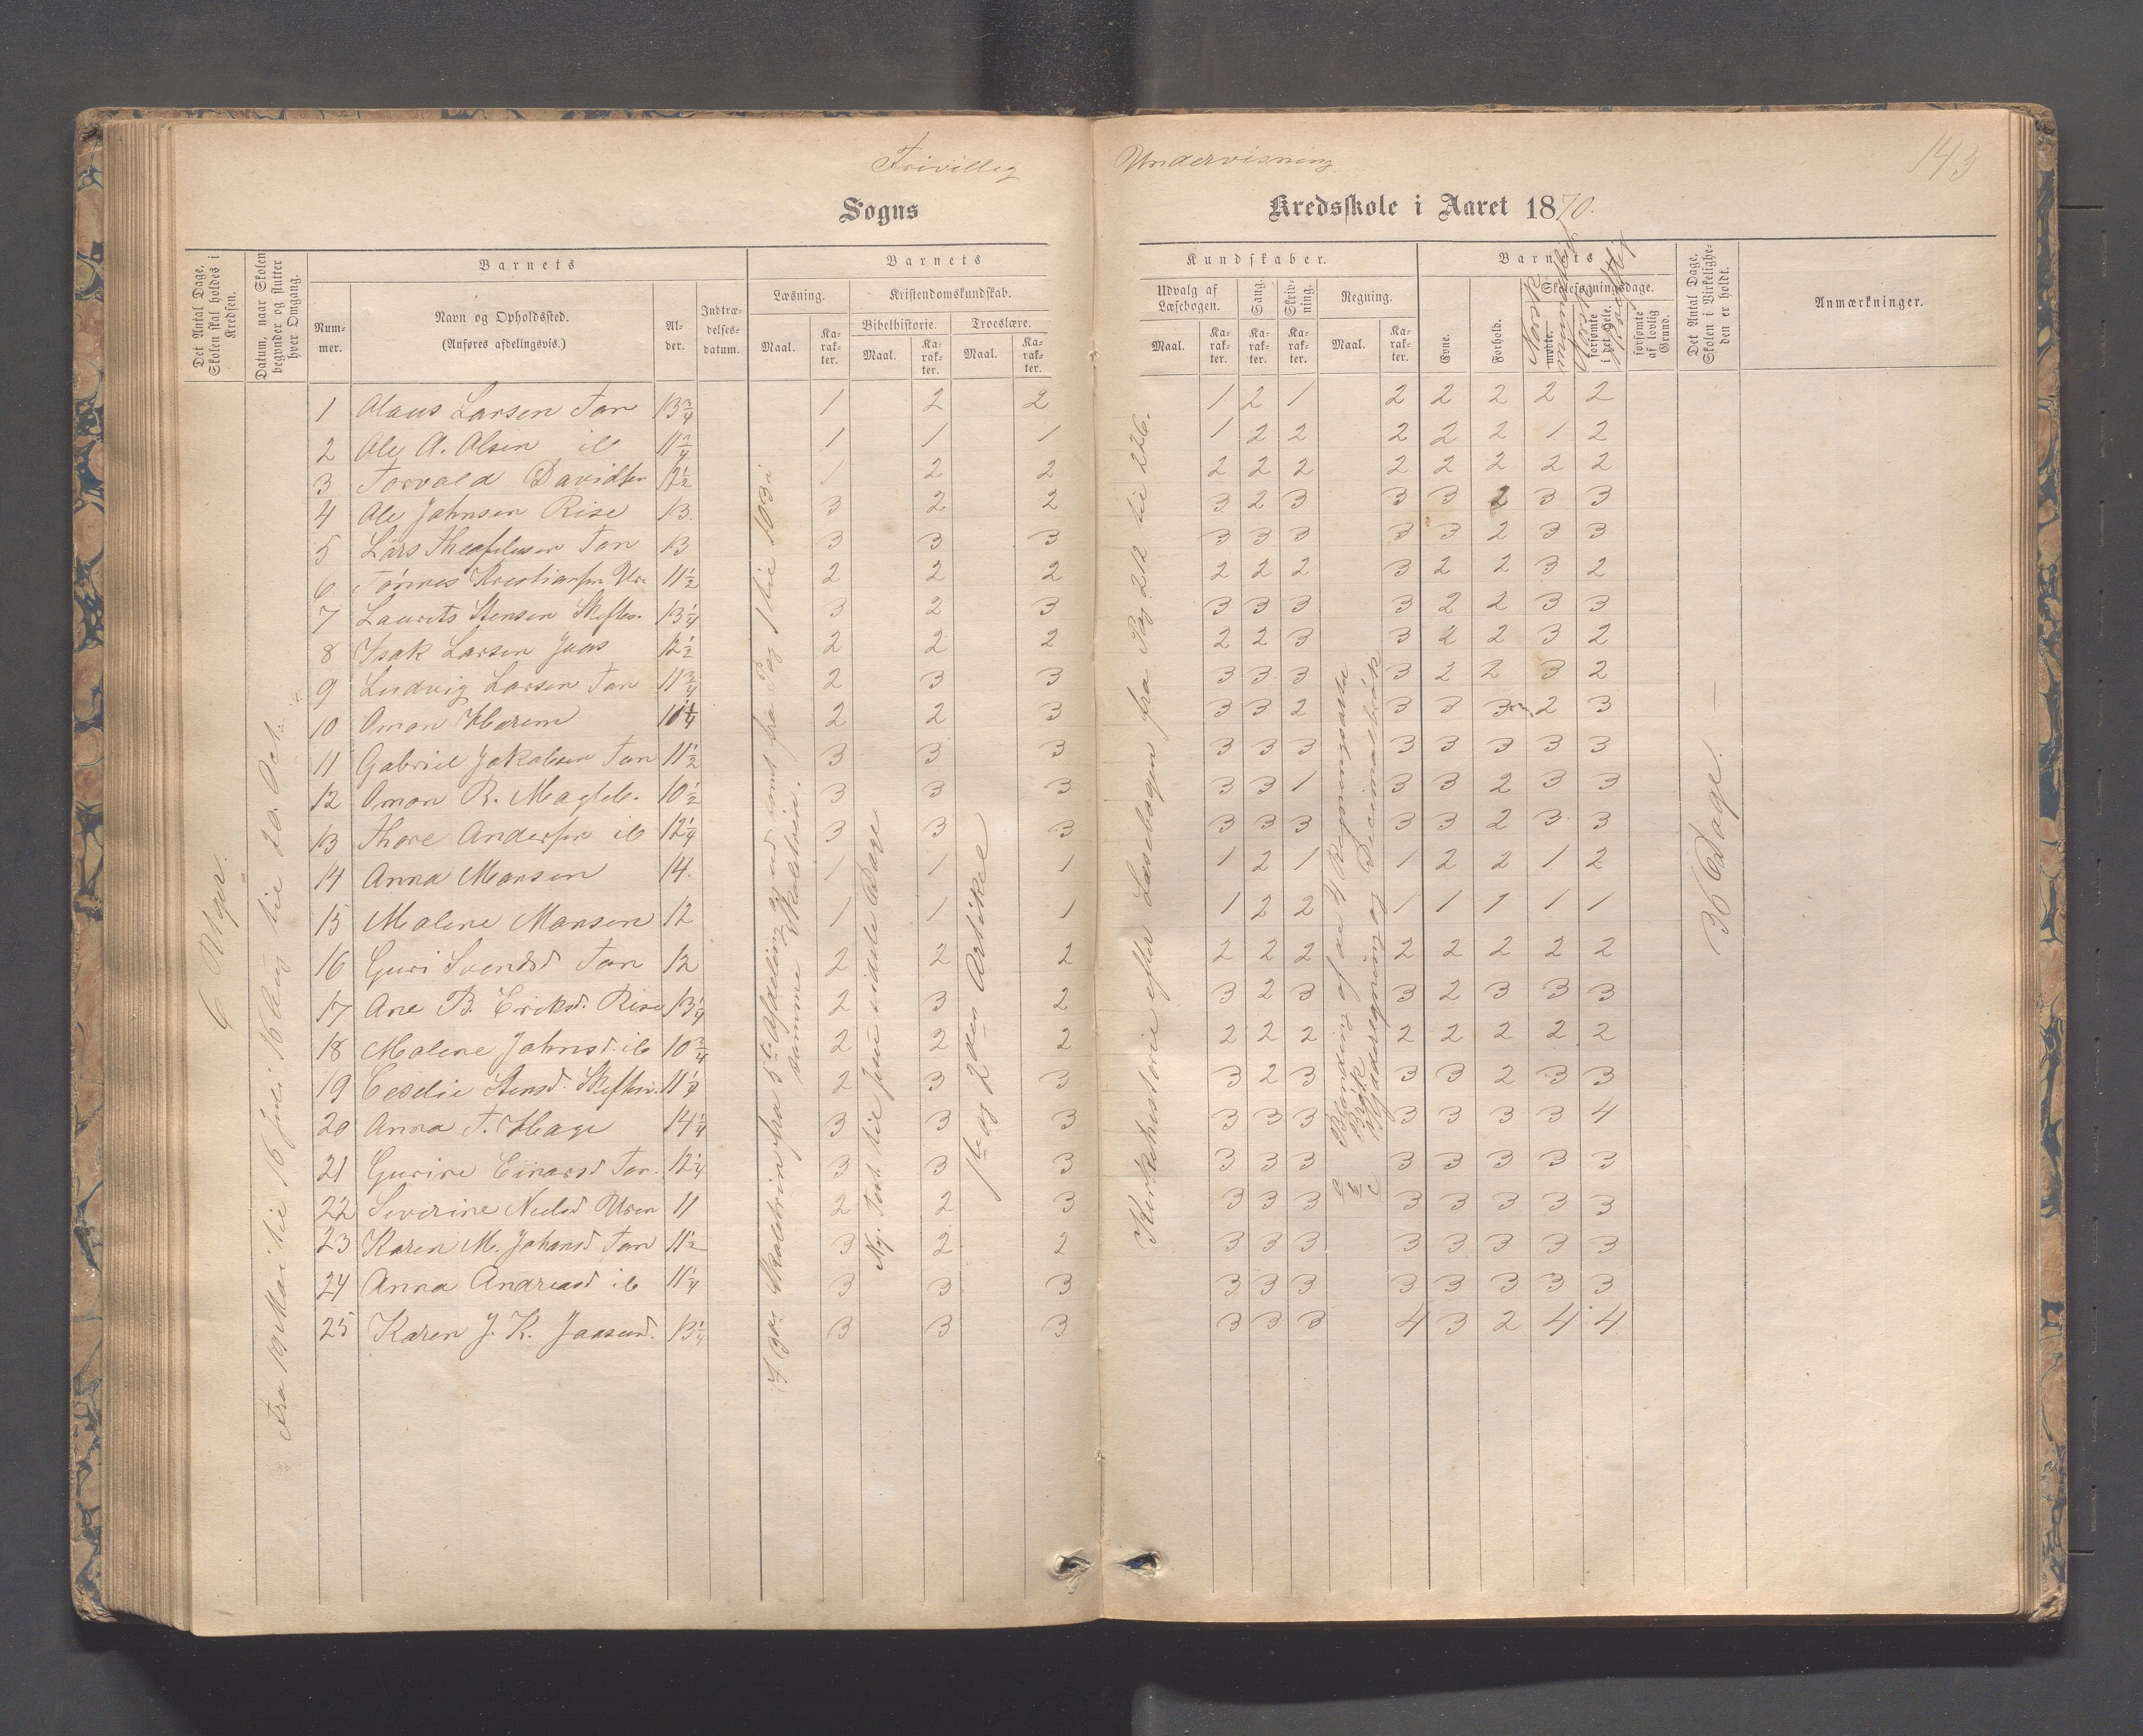 Frivillig Undervisning
143
Sogns Kredsskole i Aaret 1870.
Det Antal Dage, Skolen skal holdes i Kredsen.
Datum, naar Skolen begynder og slutter hver Omgang.
Barnets
Num-mer.
Navn og Opholdssted.
(Anføres afdelingsvis.)
Al-der.
Indtræ-delses-datum.
Barnets Kundskaber.
Læsning.
Maal.
Ka-rak-ter.
Kristendomskundskab.
Bibelhistorie.
Maal.
Ka-rak-ter.
Troeslære.
Maal.
Ka-rak-ter.
Udvalg af Læsebogen.
Maal.
Ka-rak-ter.
Sang.
Ka-rak-ter.
Skriv-ning.
Ka-rak-ter.
Regning.
Maal.
Ka-rak-ter.
Barnets
Evne.
Forhold.
Skolesøgningsdage.
mødte.
forsømte i det Hele.
forsømte af lovlig Grund.
Norsk mundtlig
Norsk skriftlig
Det Antal Dage, Skolen i Virkelighe-den er holdt.
Anmærkninger.
6 Uger.
Fra 19 Mai til 16 Juli 16 Aug til 20 Oct.
1 Olaus Larsen Tan 13 3/4 1 2 2 1 2 1 2 2 2 2 2
2 Ole A. Olsen ib 11 3/4 1 1 1 1 2 2 2 2 2 1 2
3 Torvald Davidsen 12 1/2 1 2 2 2 2 2 2 2 2 2 2
4 Ole Johnsen Rise 13. 3 2 2 3 2 3 3 3 2 3 3
5 Lars Theofilusen Tan 13 3 3 3 3 3 3 3 3 2 3 3
6 Tönnes Kristiansen 11 1/2 2 2 2 2 2 2 3 2 2 3 2
7 Laurits Stensen 13 1/4 3 2 3 3 3 3 3 2 2 3 3
8 Isak Larsen 12 1/2 2 2 2 2 2 3 3 2 2 3 2
9 Ludvig Larsen Tan 11 3/4 2 3 3 3 3 3 3 2 2 3 2
10 Omon 10 1/4 2 2 3 3 3 2 3 3 3 2 3
11 Gabriel Jakobsen Tan 11 1/2 3 3 3 3 3 3 3 3 3 3 3
12 Omon R. 10 1/2 3 3 3 3 3 1 3 3 2 3 3
13 Thore Andersen ib 12 1/4 3 3 3 3 3 3 3 3 2 3 3
14 Anna Monsen 14. 1 1 1 1 2 1 1 2 2 1 2
15 Malene Monsen 12 1 1 1 1 2 2 1 1 1 1 1
16 Guri Svendsd Tan 12 2 2 2 2 2 2 2 2 2 2 2
17 Ane B. Eriksd. Rise 13 1/4 2 3 2 3 2 3 3 2 3 3 3
18 Malene Johnsd. ib 10 3/4 2 2 2 2 2 2 2 2 2 2 2
19 Ceselie Stensd. 11 1/4 2 3 3 3 2 3 3 3 2 3 3
20 Anna T. Hage 14 1/4 3 3 3 3 3 3 3 3 3 3 4
21 Gurine Einarsd Tan. 12 1/4 3 3 3 3 3 3 3 3 3 3 3
22 Severine Neelsd Uren 11 2 2 3 3 3 3 3 3 3 3 3
23 Karen M. Johansd Tan 11 1/2 3 2 2 3 3 3 3 3 3 3 3
24 Anna Andreasd ib 11 1/4 3 3 3 3 3 3 3 3 3 3 3
25 Karen J. K. Jaasund. 13 1/4 3 3 3 3 3 3 4 3 2 4 4
fra 5te Afdeling samt fra Pag 1 til 103 i
samme
til Jesu sidste Dage
1ste og 2den Artikel
Kirkehistorie efter Læsebogen fra Pag 212 til 226.
Blanding af de 4 Regningsarter
Brøk og Decimalbrøk
36 Dage. —